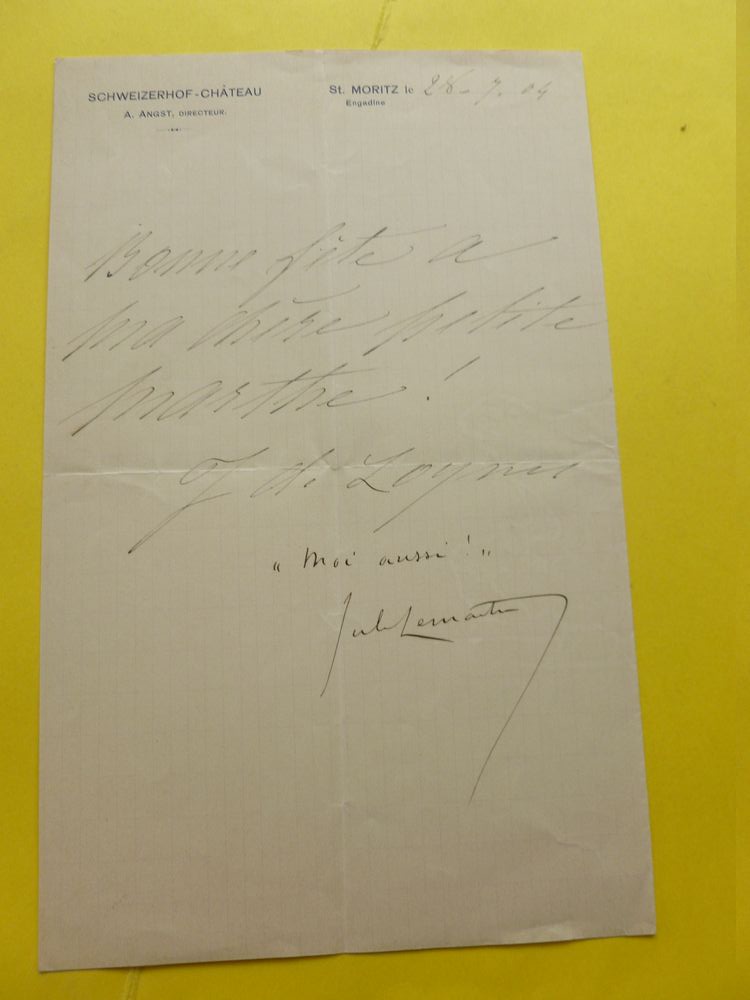 SCHWEIZERHOF-CHÂTEAU
A. ANGST, DIRECTEUR.
St. MORITZ le 28-7.04
Engadine
Bonne fête a
ma chère petite
marthe !
J de Loynes
" Moi aussi ! "
Jules Lemaitre